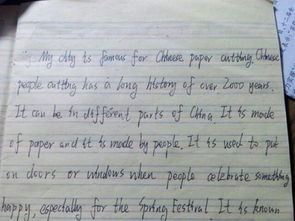 My city is famous for Chinese paper cutting. Chinese
people cutting has a long history of over 2000 years.
It can be in different parts of China It is made
of paper and it is made by people. It is used to put
on doors or windows when people celebrate something
happy, especially for the Spring Festival It is known